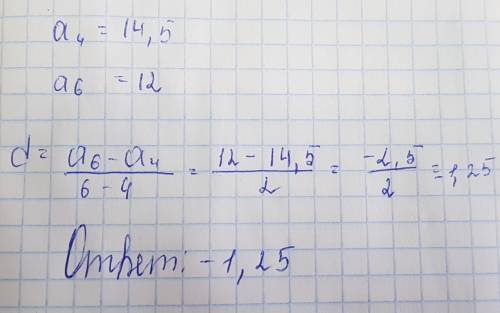 a₄ = 14,5
a₆ = 12
d = (a₆ - a₄)/(6 - 4) = (12 - 14,5)/2 = (-2,5)/2 = 1,25
Ответ: -1,25